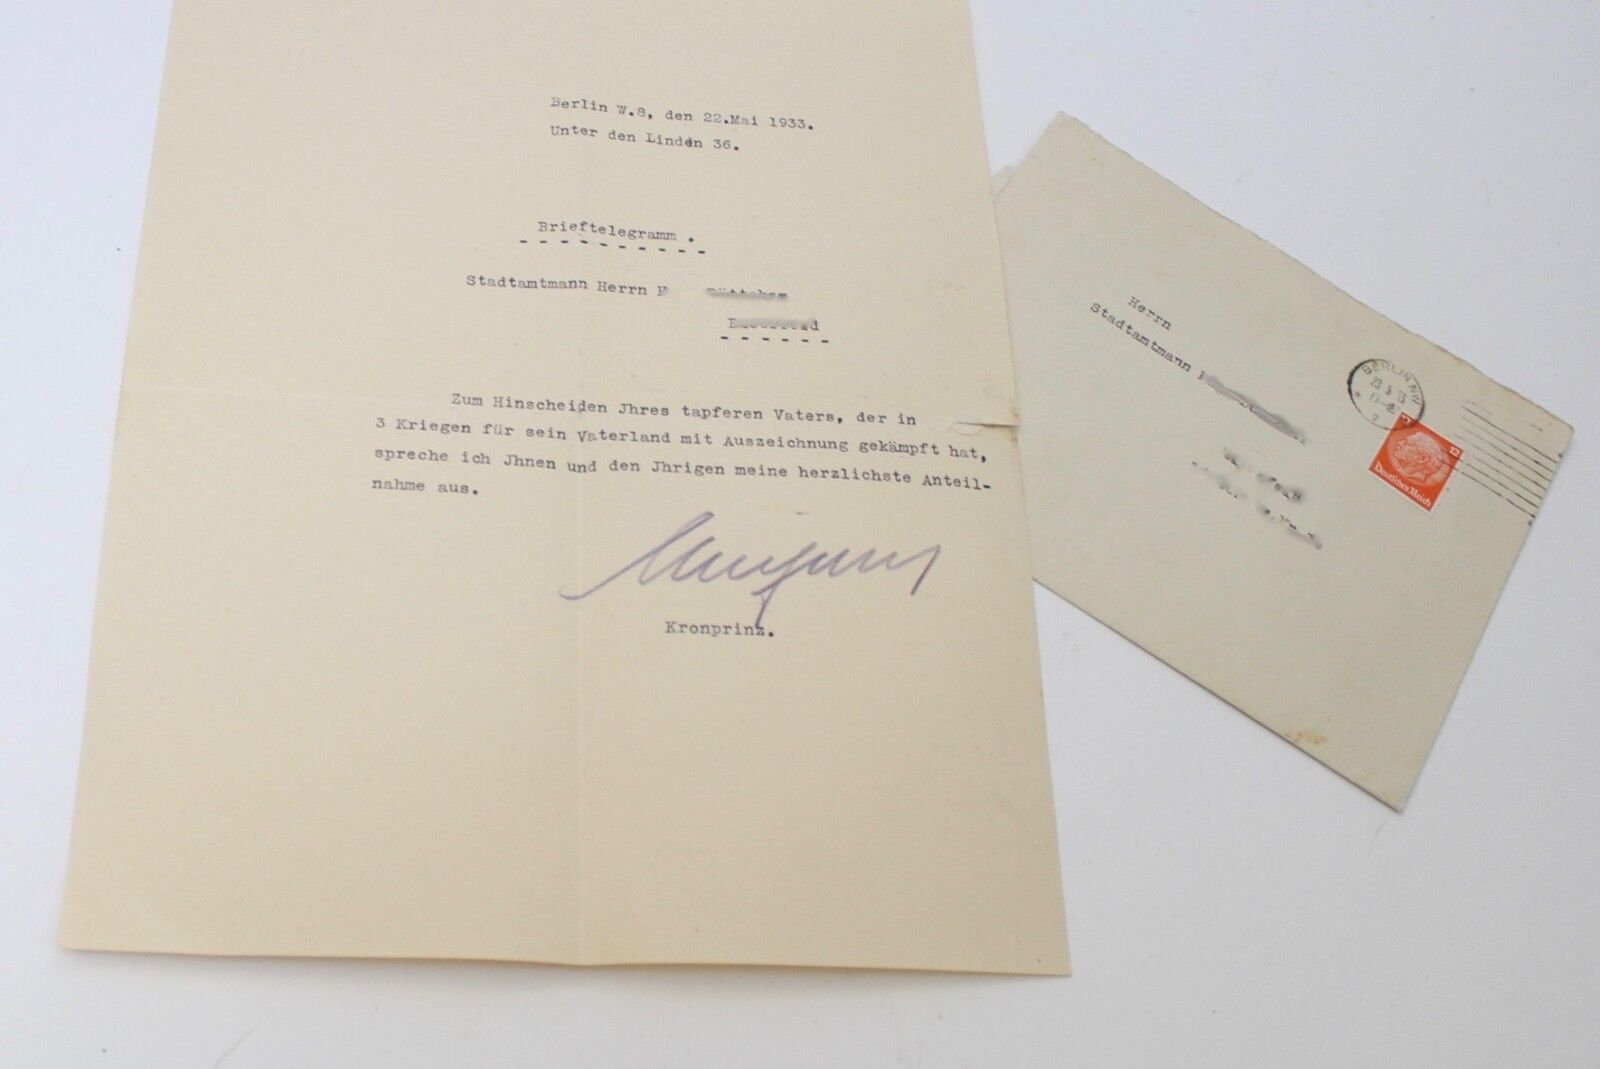 Berlin W.8, den 22.Mai 1933.
Unter den Linden 36.
Brieftelegramm .
Stadtamtmann Herrn
Zum Hinscheiden Jhres tapferen Vaters, der in
3 Kriegen für sein Vaterland mit Auszeichnung gekämpft hat,
spreche ich Jhnen und den Jhrigen meine herzlichste Anteil-
nahme aus.
Kronprinz.
Herrn
Stadtamtmann
BERLIN NW
12
Deutsches Reich